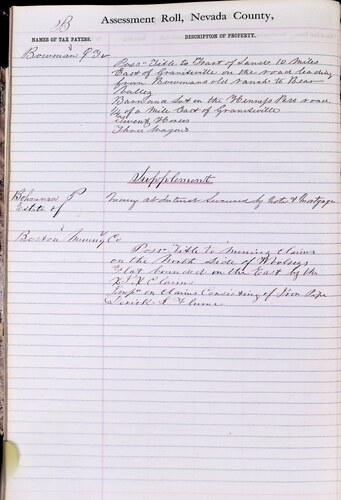 B
Assessment Roll, Nevada County,
NAMES OF TAX PAYERS.
DESCRIPTION OF PROPERTY.
Bowman
Possn Title to Tract of Land 10 Miles
East of Graniteville on the road leading
from Bowmans old ranch to Bear
Valley
Barn and Lot on the Henness Pass road
1/4 of a Mile East of Graniteville
Twenty Horses
Three Wagons
Supplement
Bohannan P
Estate of
Money at Interest Secured by Note & Mortgage
Boston Mining Co
Possn Title to Mining Claims
on the North Side of Woolseys
Flat bounded on the East by the
Claims
Impts on Claims Consisting of Iron Pipe
Derrick & Flume